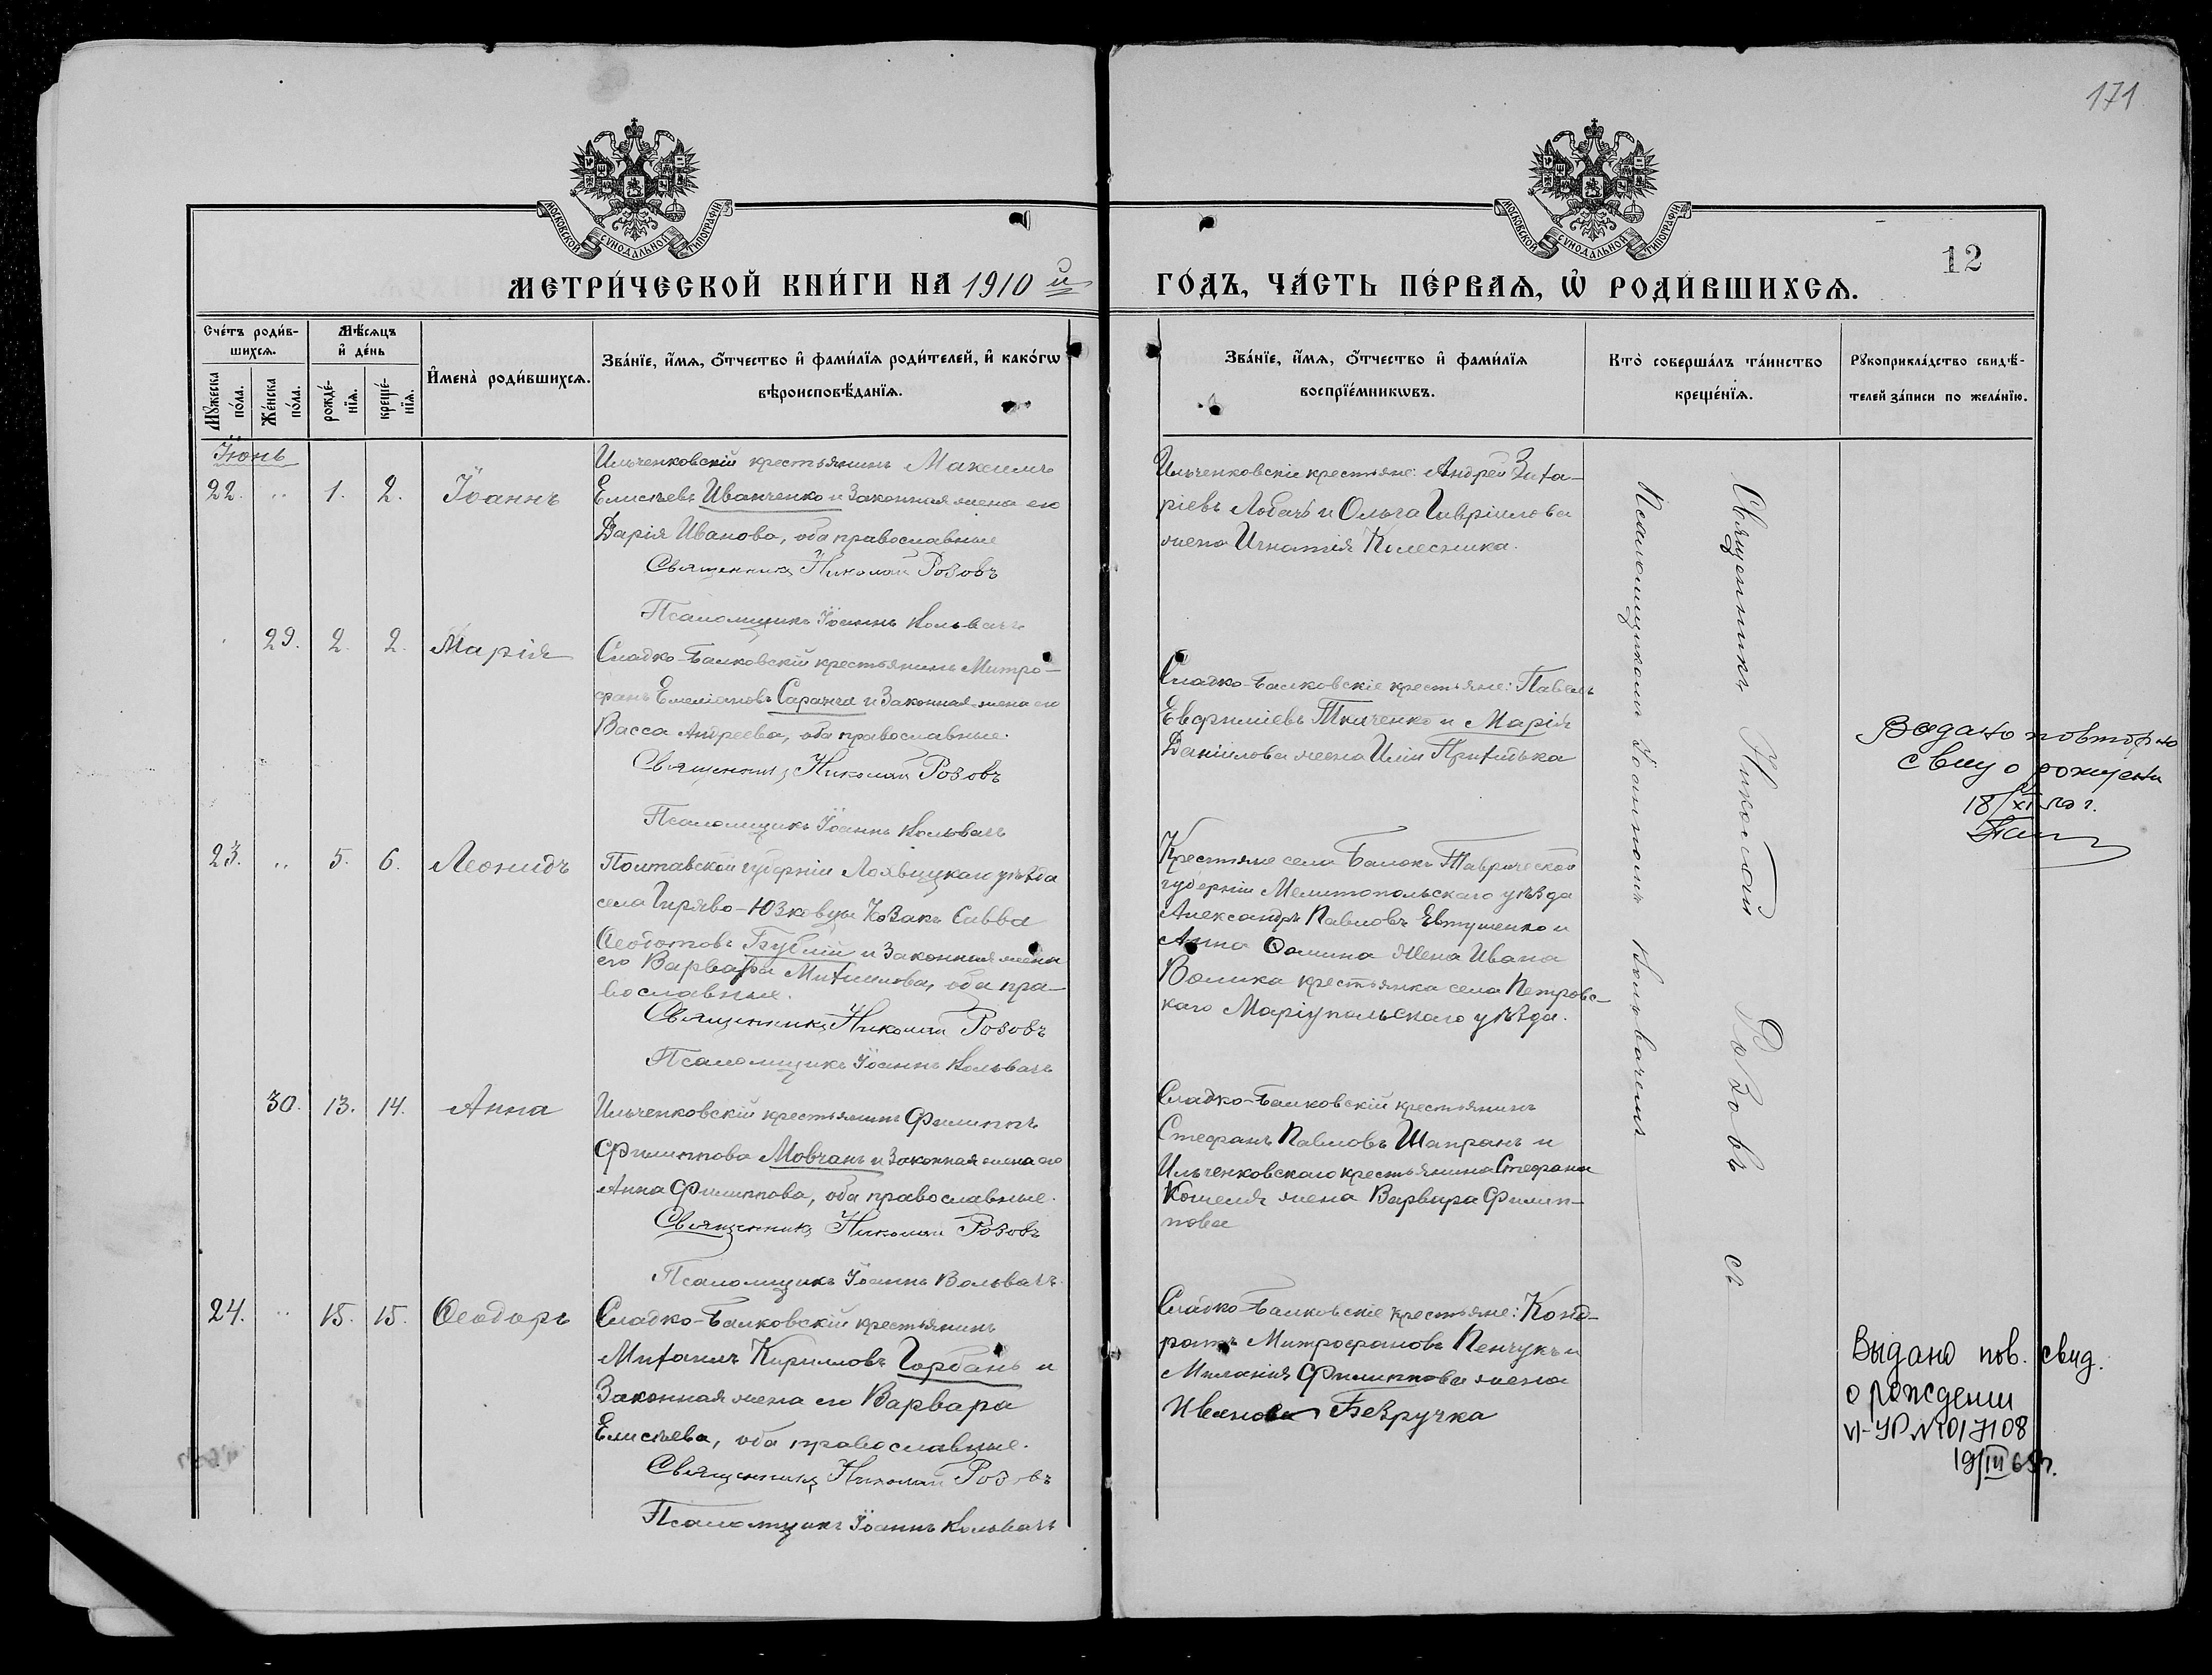 171
МОСКОВСКОЙ СѴНОДАЛЬНОЙ ТИПОГРАФІИ
МОСКОВСКОЙ СѴНОДАЛЬНОЙ ТИПОГРАФІИ
12
МЕТРИ́ЧЕСКОЙ КНИ́ГИ НА 1910 й
ГО́ДЪ, ЧА́СТЬ ПЕ́РВАѦ, Ѡ҆ РОДИ́ВШИХСѦ.
Сче́тъ роди́в-
шихсѧ.
Мꙋ́жеска по́ла.
Же́нска по́ла.
Мѣ́сѧцъ
и҆ де́нь
рожде́-
нїѧ.
креще́-
нїѧ.
И҆мена̀ роди́вшихсѧ.
Зва́нїе, и҆́мѧ, ѻ҆́тчество и҆ фами́лїѧ роди́телей, и҆ како́гѡ
вѣроисповѣ́данїѧ.
Зва́нїе, и҆́мѧ, ѻ҆́тчество и҆ фами́лїѧ
воспрїе́мникѡвъ.
Кто̀ соверша́лъ та́инство
креще́нїѧ.
Рꙋкоприкла́дство свидѣ́-
телей за́писи по жела́нїю.
Іюнь
22. „ 1. 2. Іоаннъ
Ильченковскій крестьянинъ Максимъ
Елисѣевъ Иванченко и законная жена его
Дарія Иванова, оба православные
Священникъ Николай Розовъ
Псаломщикъ Іоаннъ Кольвачъ
Ильченковскіе крестьяне: Андрей Заха-
ріевъ Лобачъ и Ольга Гавріилова
жена Игнатія Колесника.
29. 2. 2. Марія
Сладко-Балковскій крестьянинъ Митро-
фанъ Емеліановъ Саранча и законная жена его
Васса Андреева, оба православные.
Священникъ Николай Розовъ
Псаломщикъ Іоаннъ Кольвачъ
Сладко-Балковскіе крестьяне: Павелъ
Евфиміевъ Ткаченко и Марія
Даніилова жена Иліи Прихидька
Видано повторно
св-цу о рожден
18/XI 50 г.
23. „ 5. 6. Леонидъ
Полтавской губерніи Лохвицкаго уѣзда
села Гиряво-Юзковцы козакъ Савва
Ѳеотовъ Бублій и законная жена
его Варвара Михаилова, оба пра-
вославные.
Священникъ Николай Розовъ
Псаломщикъ Іоаннъ Кольвачъ
Крестьяне села Балокъ Таврической
губерніи Мелитопольскаго уѣзда
Александръ Павловъ Евтушенко и
Анна Ѳомина жена Ивана
Волика крестьянка села Петровс-
каго Маріупольскаго уѣзда.
30. 13. 14. Анна
Ильченковскій крестьянинъ Филиппъ
Филиппова Мовчанъ и законная жена его
Анна Филиппова, оба православные.
Священникъ Николай Розовъ
Псаломщикъ Іоаннъ Кольвачъ
Сладко-Балковскій крестьянинъ
Стефанъ Павловъ Шапранъ и
Ильченковскаго крестьянина Стефана
Кошеля жена Варвара Филип-
пова
24. „ 15. 15. Ѳеодоръ
Сладко-Балковскій крестьянинъ
Михаилъ Кирилловъ Горбань и
законная жена его Варвара
Елисѣева, оба православные.
Священникъ Николай Розовъ
Псаломщикъ Іоаннъ Кольвачъ
Сладко-Балковскіе крестьяне: Конд-
ратъ Митрофановъ Пенчукъ и
Миланія Филиппова жена
Ивана Безручка
Священникъ Николай Розовъ съ
Псаломщикомъ Іоанномъ Кольвачемъ
Выдано пов. свид.
о рождении
VI-УР №017108
19/III 65г.